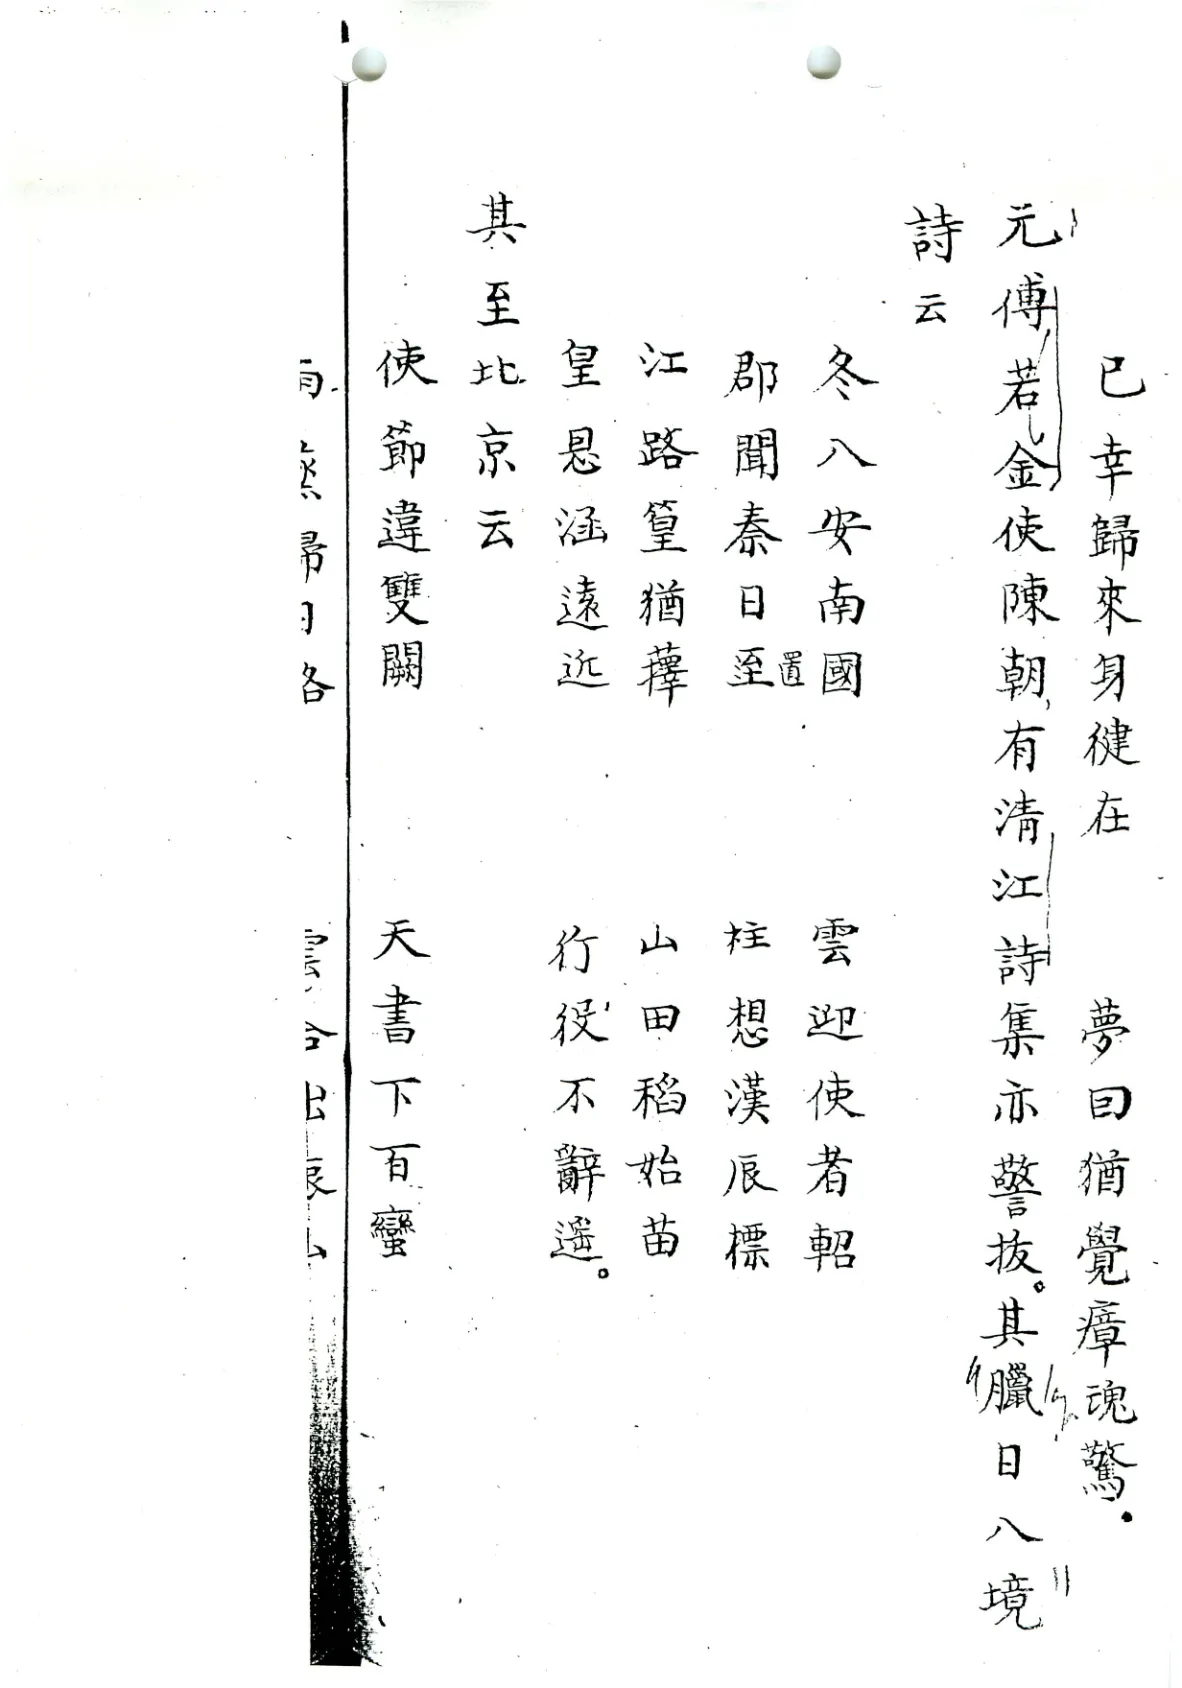 已幸歸來身徤在 夢囙猶覺瘴魂驚
元傅若金使陳朝有清江詩集亦警拔。其臘日八境
詩云
冬八安南國 雲迎使者軺
置
郡聞秦日至 柱想漢辰標
江路篁猶蘀 山田稻始苗
皇恩涵遠近 行役不辭遥。
其至北京云
使節違雙闕 天書下百蠻
雨 歸日
雲合出